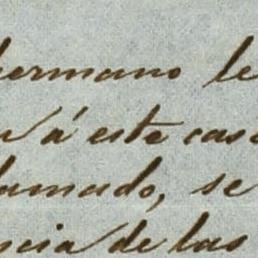 hermano le
n á este caso
lamado, se
ncia de las